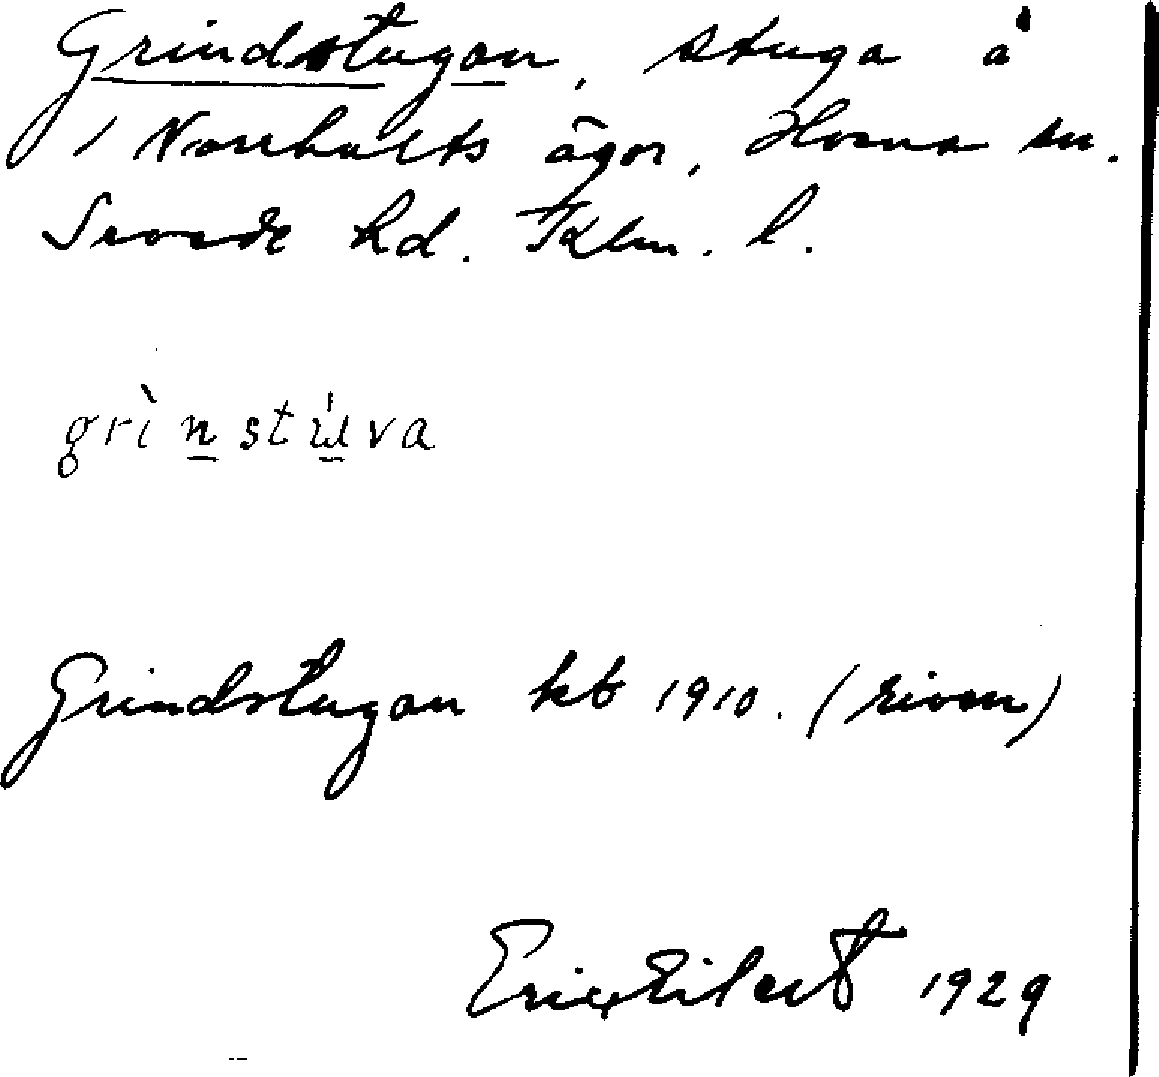 Grindstugan, stuga å
Norrhults ägor, sn.
Sevede hd. Klm. l.
grìnstu̇va
Grindstugan kb 1910. (riven)
1929